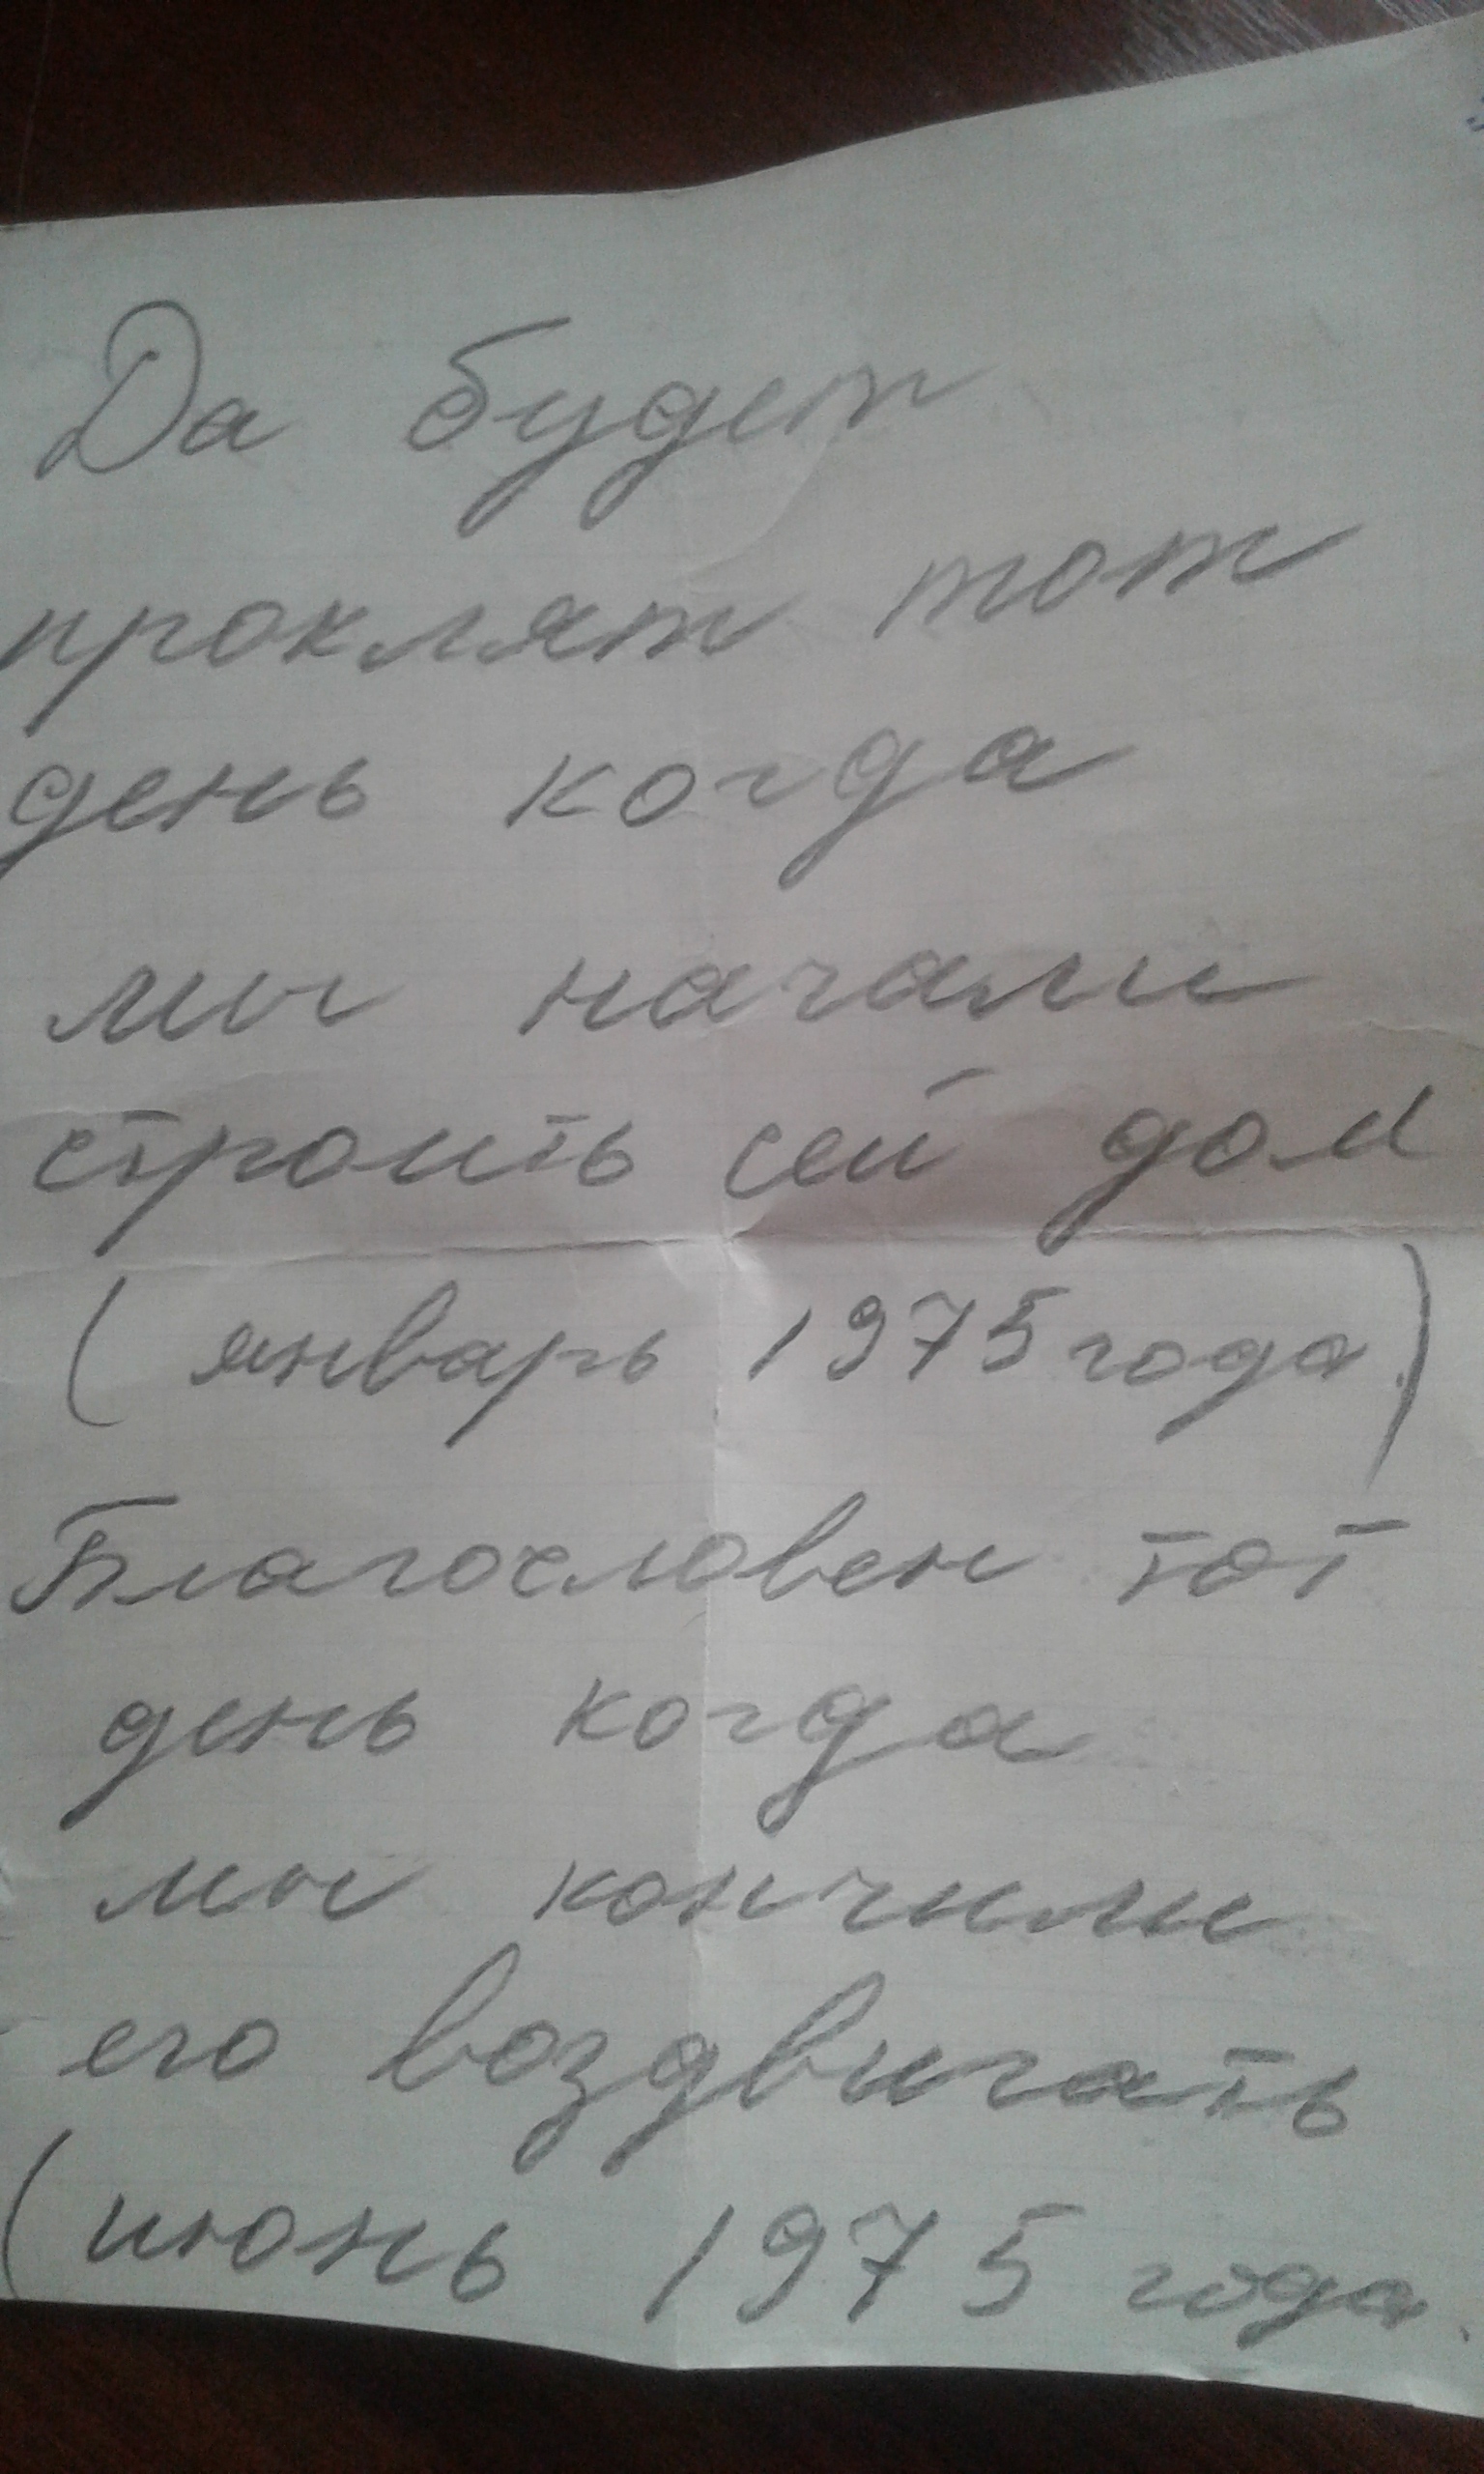 Да будет
проклят тот
день когда
мы начали
строить сей дом
(январь 1975 года.)
Благословен тот
день когда
мы кончили
его воздвигать
(июнь 1975 года.